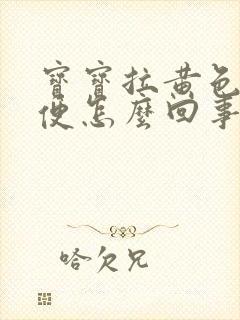 寶寶拉黃色
便怎麼回事
哈欠兄